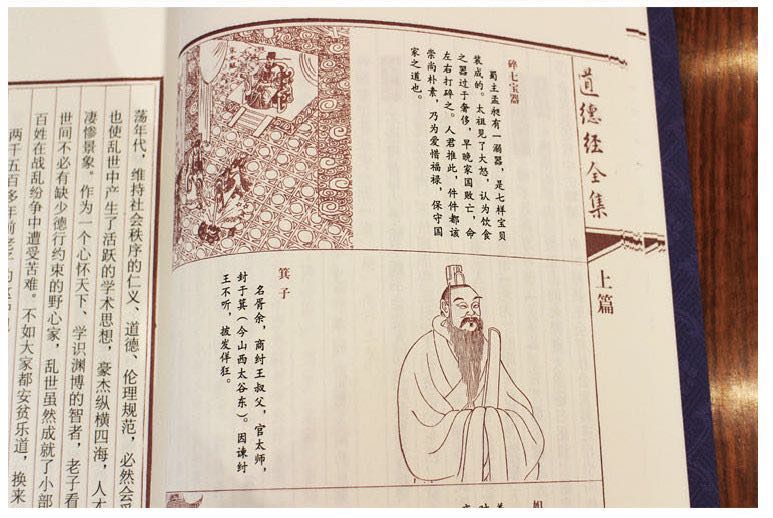 道德经全集
上篇
碎七宝器
蜀主孟昶有一溺器,是七样宝贝
装成的。太祖见了大怒,认为饮食
之器过于奢侈,早晚家国败亡,命
左右打碎之。人君推此,件件都该
崇尚朴素,乃为爱惜福禄,保守国
家之道也。
箕子
名胥余,商纣王叔父,官太师,
封于箕(今山西太谷东)。因谏纣
王不听,披发佯狂。
荡年代,维持社会秩序的仁义、道德、伦理规范,必然会受
也使乱世中产生了活跃的学术思想,豪杰纵横四海,人才
凄惨景象。作为一个心怀天下、学识渊博的智者,老子看
世间不必有缺少德行约束的野心家,乱世虽然成就了小部
百姓在战乱纷争中遭受苦难。不如大家都安贫乐道,换来
两千五百多年前